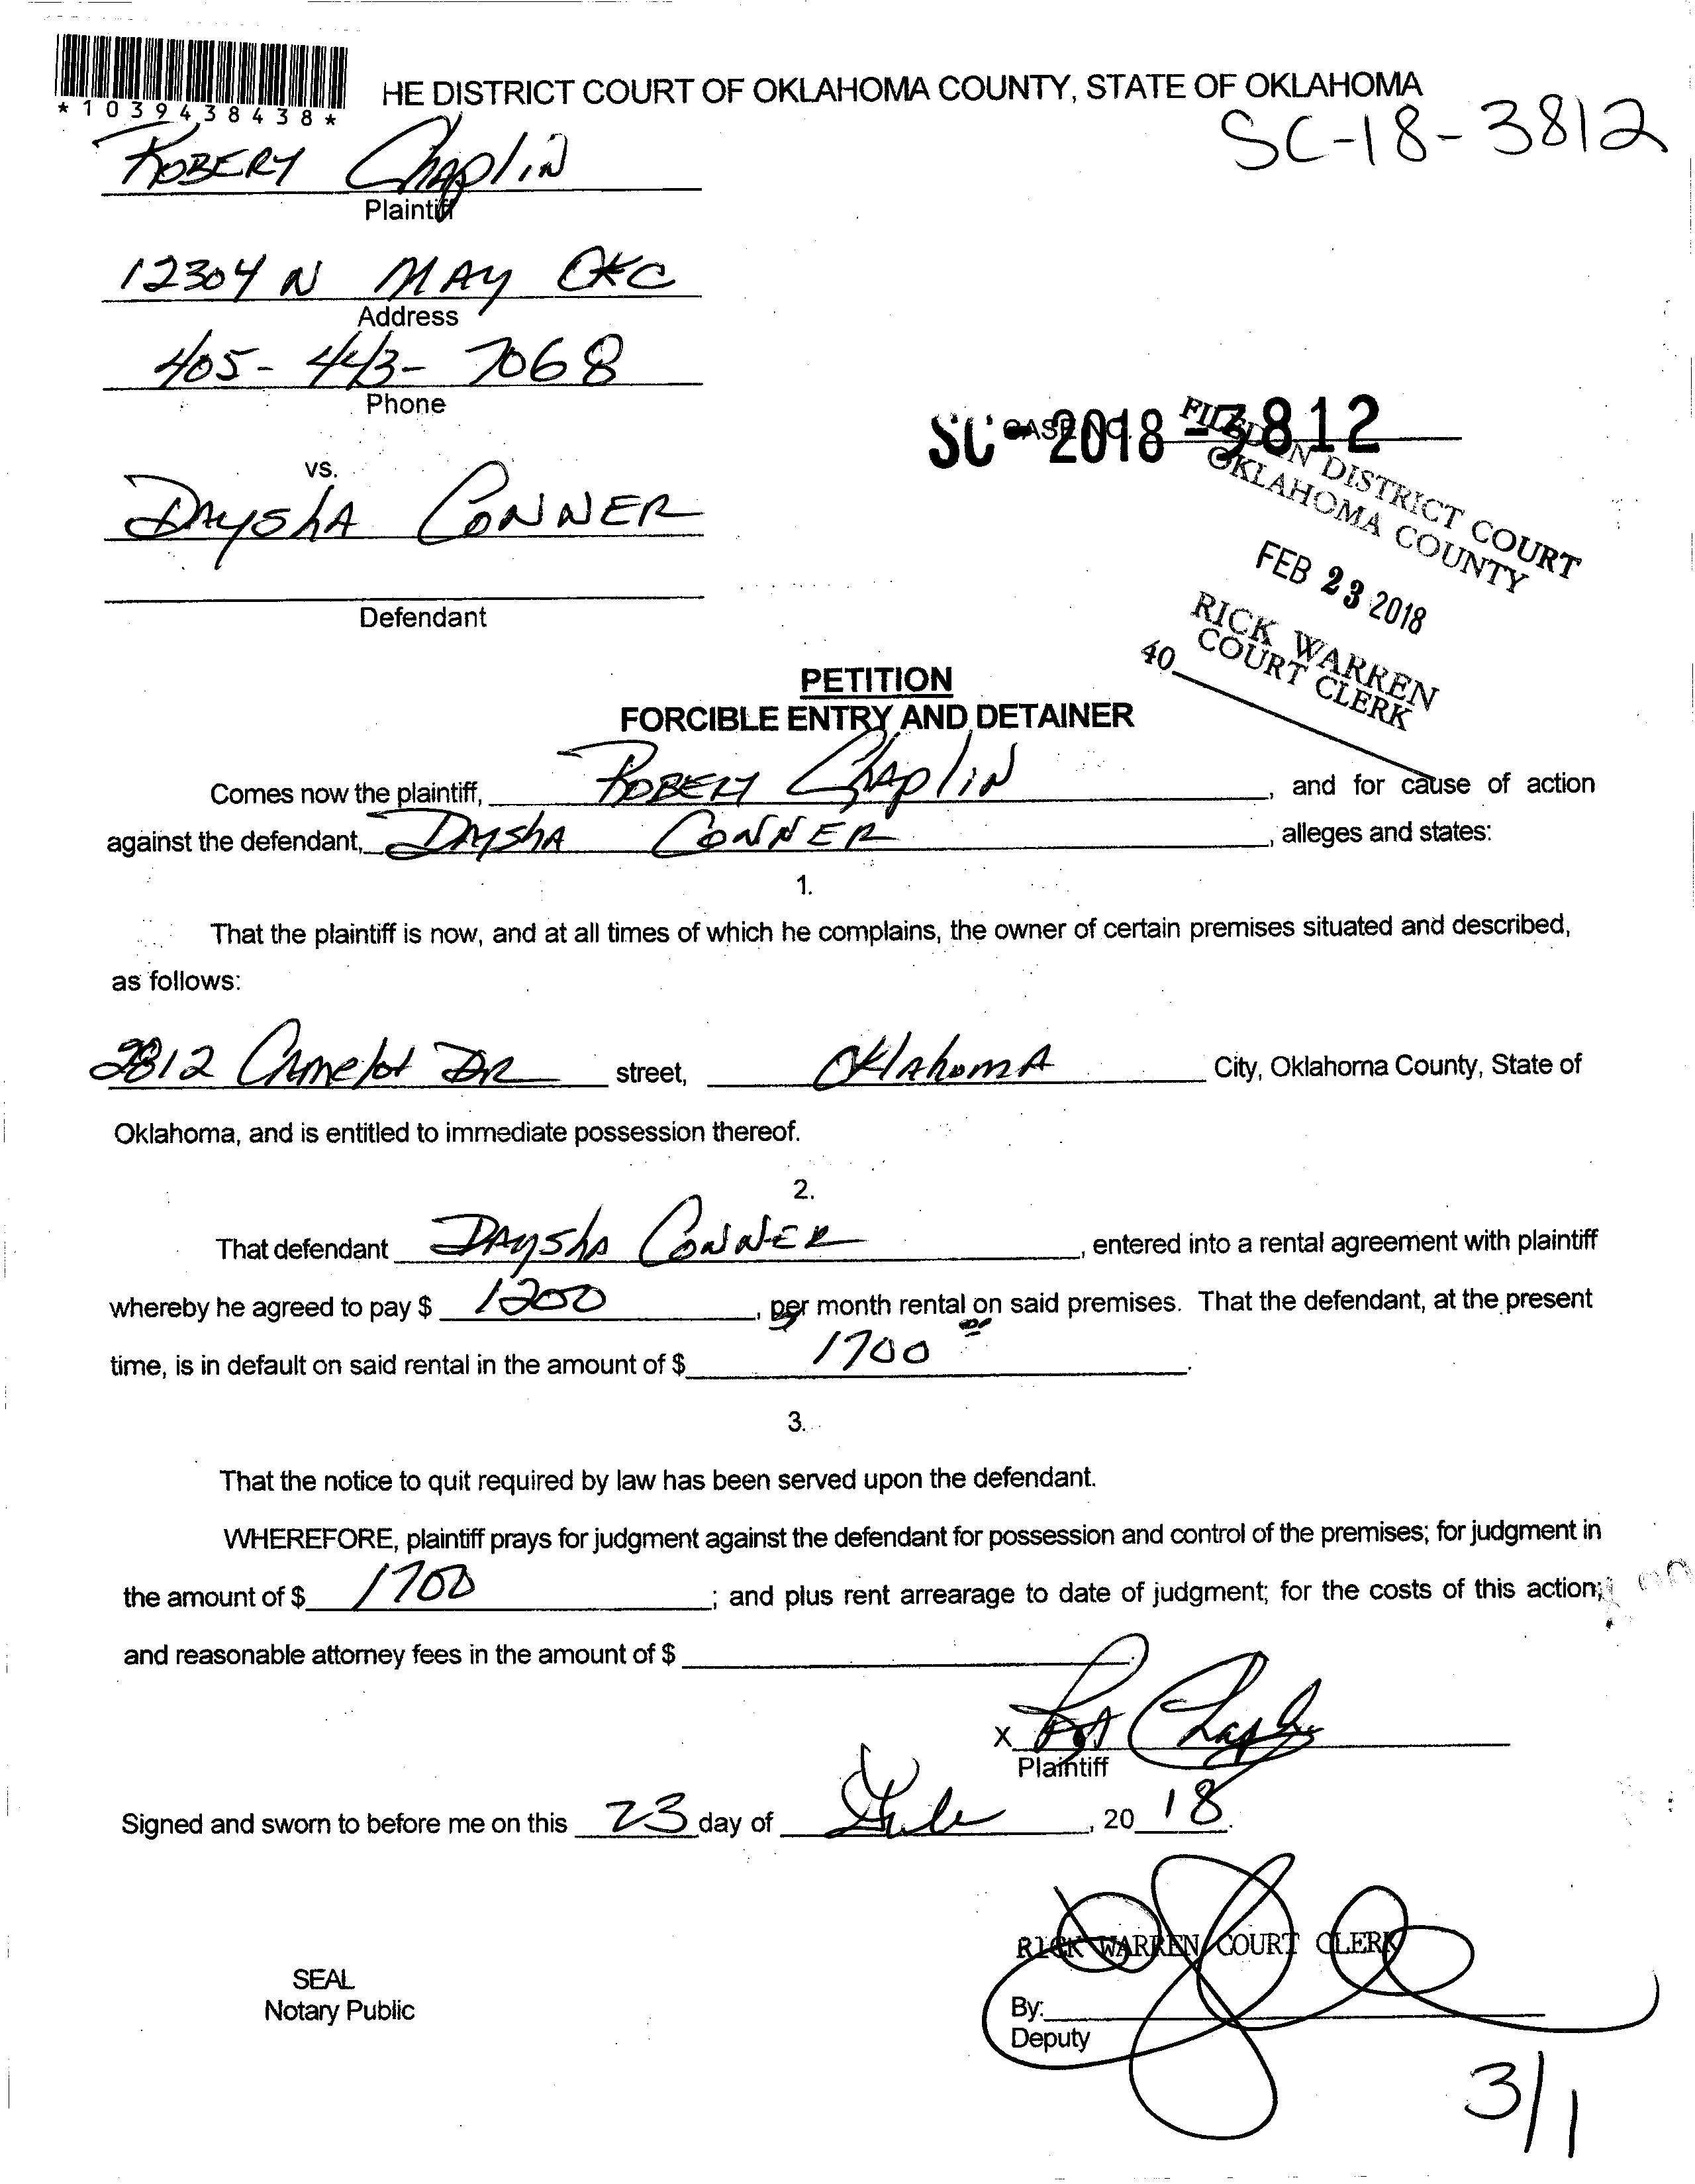 HE DISTRICT COURT OF OKLAHOMA COUNTY, STATE OF OKLAHOMA
*1039438438*
SC-18-3812
ROBERT Chaplin
Plaintiff
12304 N MAY OKC
Address
405-443-7068
Phone
CASE NO.
SC-2018-3812
FILED IN DISTRICT COURT
OKLAHOMA COUNTY
vs.
DAYSHA CONNER
FEB 23 2018
Defendant
RICK WARREN
COURT CLERK
40
PETITION
FORCIBLE ENTRY AND DETAINER
Comes now the plaintiff, ROBERT Chaplin, and for cause of action
against the defendant, DAYSHA CONNER, alleges and states:
1.
That the plaintiff is now, and at all times of which he complains, the owner of certain premises situated and described,
as follows:
2812 Camelot DR street, Oklahoma City, Oklahoma County, State of
Oklahoma, and is entitled to immediate possession thereof.
2.
That defendant DAYSHA CONNER, entered into a rental agreement with plaintiff
whereby he agreed to pay $ 1200, per month rental on said premises. That the defendant, at the present
time, is in default on said rental in the amount of $ 1700.
3.
That the notice to quit required by law has been served upon the defendant.
WHEREFORE, plaintiff prays for judgment against the defendant for possession and control of the premises; for judgment in
the amount of $ 1700; and plus rent arrearage to date of judgment; for the costs of this action;
and reasonable attorney fees in the amount of $
X
Plaintiff
Signed and sworn to before me on this 23 day of Feb, 2018.
RICK WARREN COURT CLERK
SEAL
Notary Public
By:
Deputy
3/1